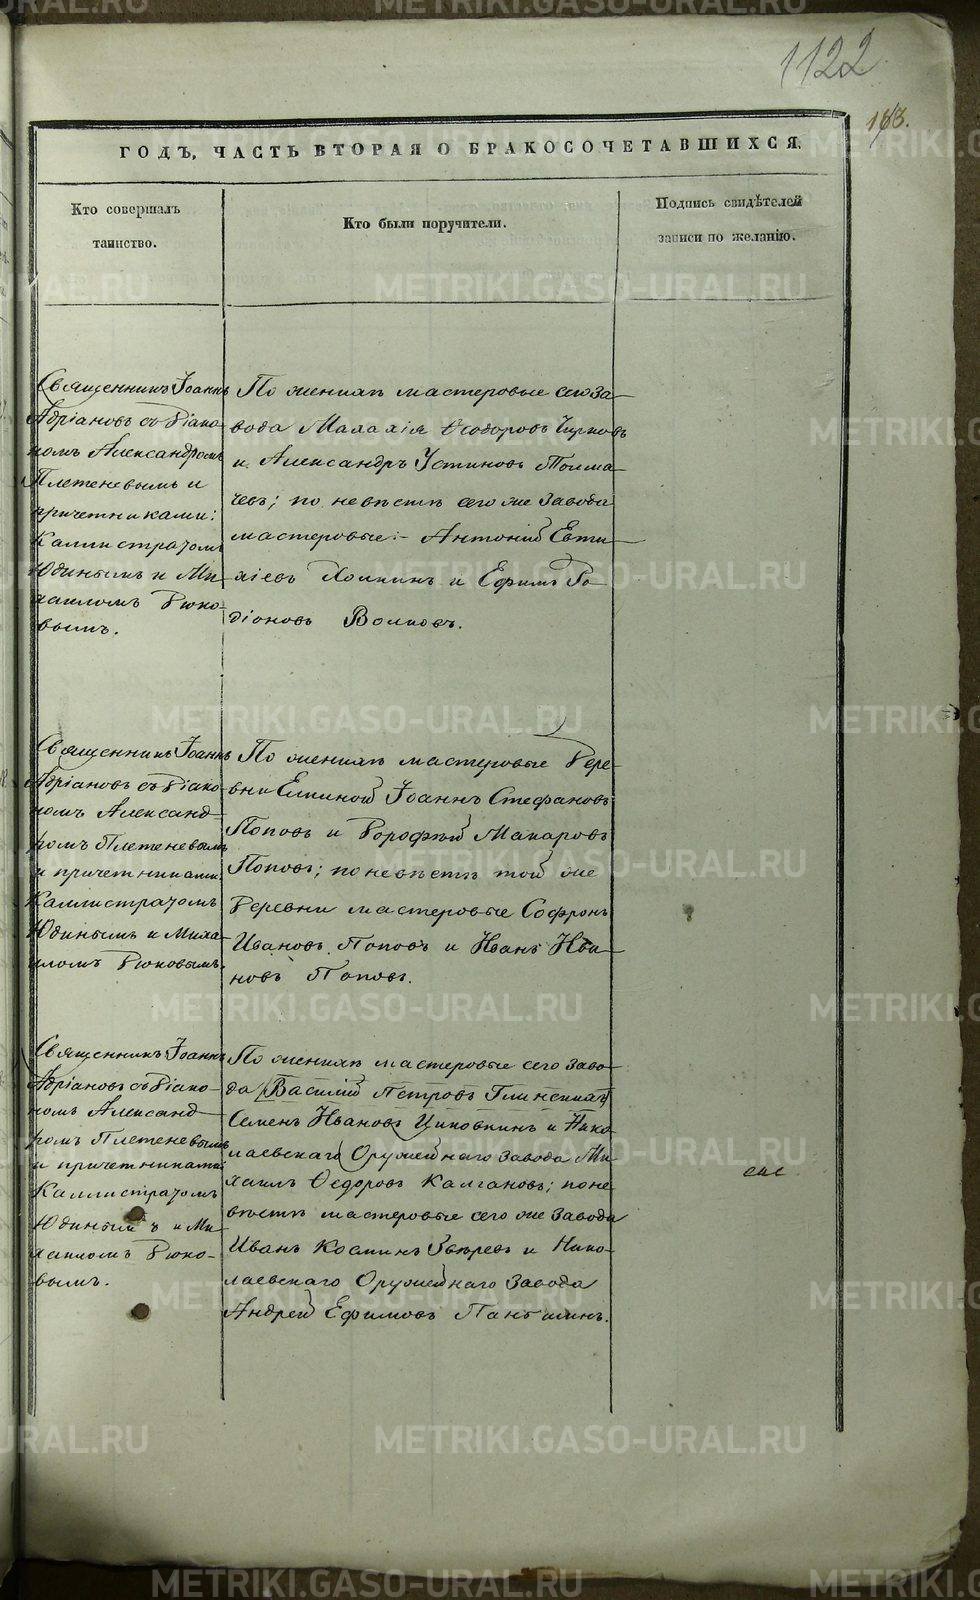 METRIKI.GASO-URAL.RU
1122
183.
ГОДЪ, ЧАСТЬ ВТОРАЯ О БРАКОСОЧЕТАВШИХСЯ.
Кто совершалъ
таинство.
Кто были поручители.
Подпись свидѣтелей
записи по желанію.
Священникъ Іоаннъ
Адріановъ съ Діако-
номъ Александромъ
Плетеневымъ и
причетниками:
Каллистратомъ
Юдинымъ и Ми-
хаиломъ Рюко-
вымъ.
По женихѣ мастеровые сего за-
вода Малахія Ѳеодоровъ Чирковъ
и Александръ Устиновъ Толма-
чевъ; по невѣстѣ сего же завода
мастеровые:- Антоній Евти-
хіевъ Холкинъ и Ефимъ Ро-
діоновъ Волковъ.
Священникъ Іоаннъ
Адріановъ съ Діако-
номъ Александ-
ромъ Плетеневымъ
и причетниками:
Каллистратомъ
Юдинымъ и Миха-
иломъ Рюковымъ.
По женихѣ мастеровые Дере-
вни Елкиной Іоаннъ Стефановъ
Поповъ и Дорофѣй Макаровъ
Поповъ; по невѣстѣ той же
Деревни мастеровые Софронъ
Ивановъ Поповъ и Иванъ Ива-
новъ Поповъ.
Священникъ Іоаннъ
Адріановъ съ Діако-
номъ Александ-
ромъ Плетеневымъ
и причетниками:
Каллистратомъ
Юдинымъ и Ми-
хаиломъ Рюко-
вымъ.
По женихѣ мастеровые сего заво-
да Василій Петровъ Глинскихъ
Семенъ Ивановъ Циковкинъ и Нико-
лаевскаго Оружейнаго завода Ми-
хаилъ Ѳедоровъ Калгановъ; по не-
вѣстѣ мастеровые сего же завода
Иванъ Козминъ Звѣревъ и Нико-
лаевскаго Оружейнаго завода
Андрей Ефимовъ Паньшинъ.